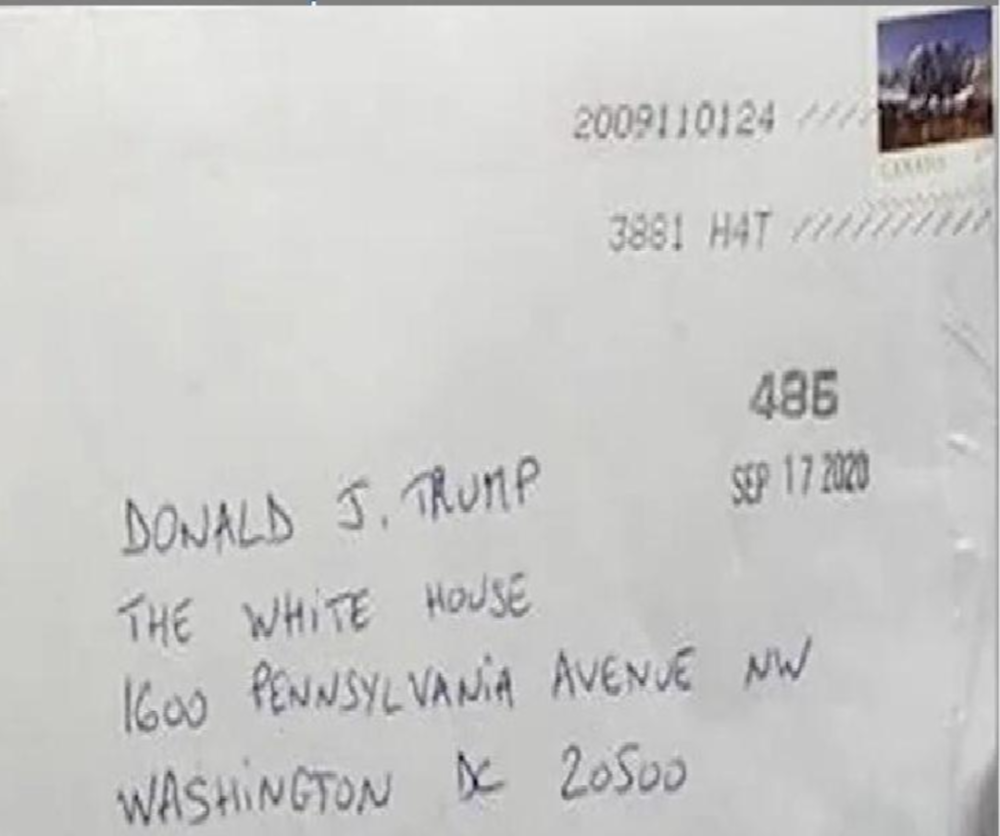 2009110124
CANADA
3881 H4T
486
SEP 17 2020
DONALD J. TRUMP
THE WHITE HOUSE
1600 PENNSYLVANIA AVENUE NW
WASHINGTON DC 20500